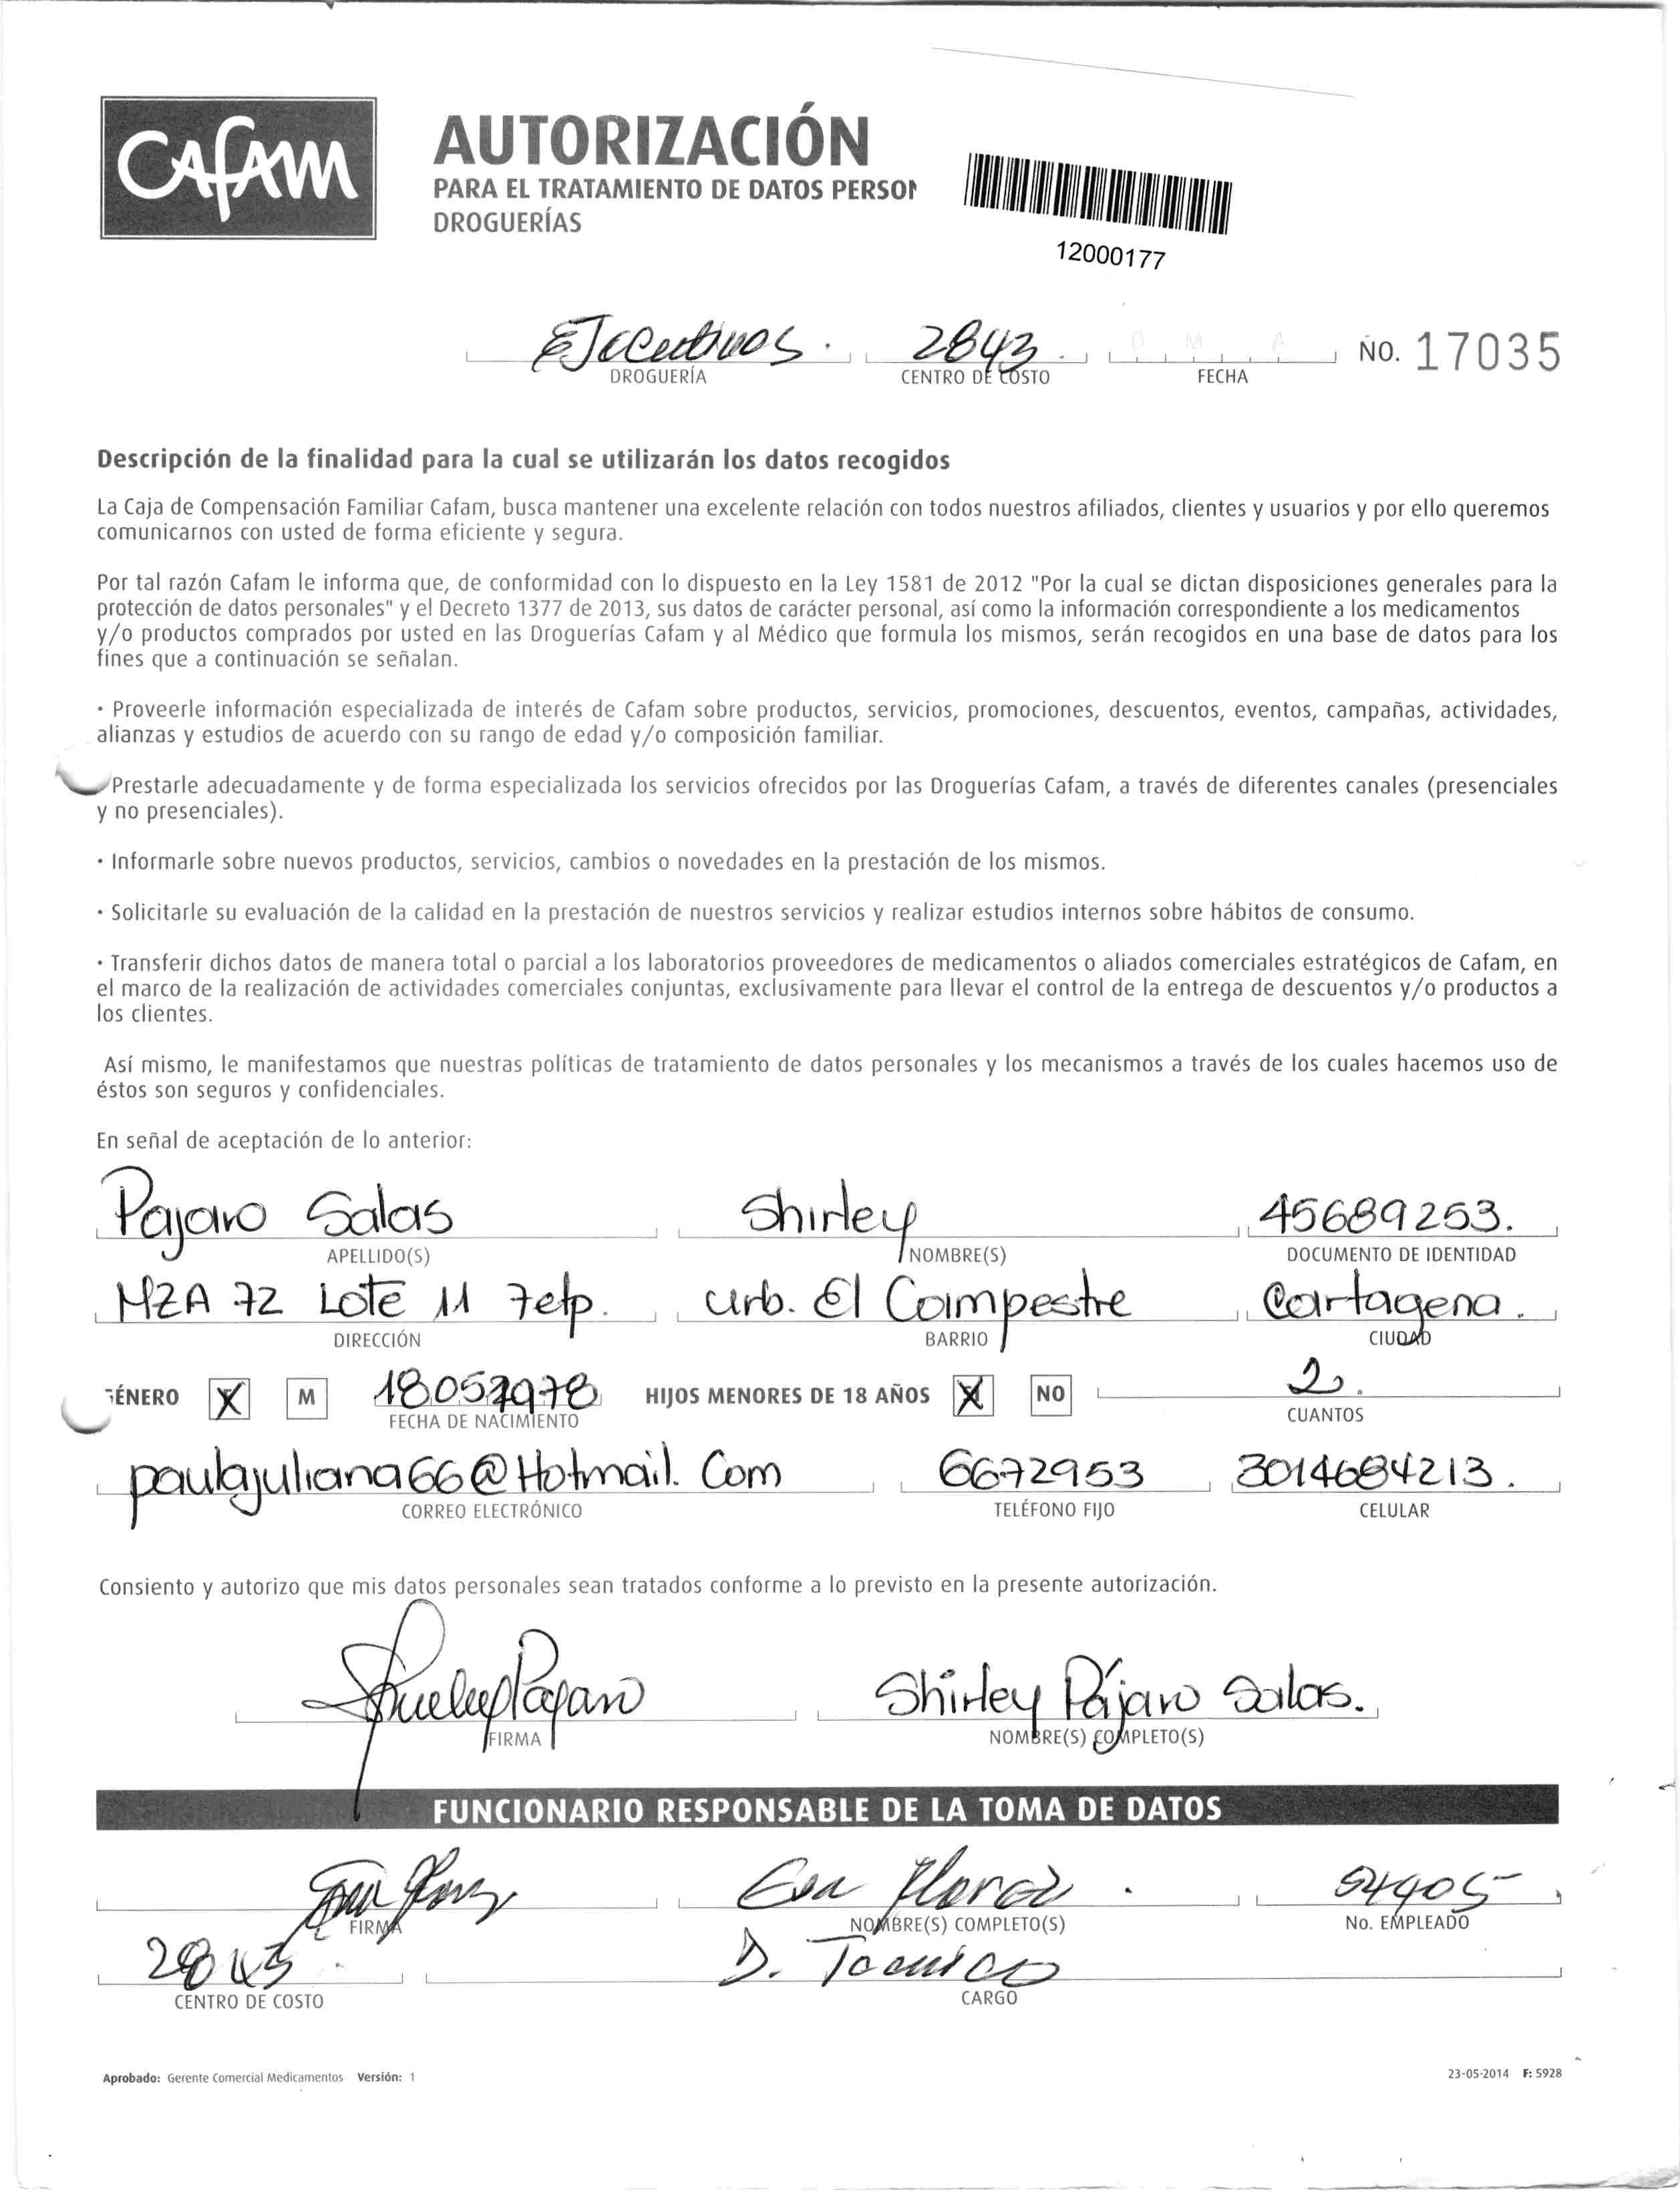 CAFAM
AUTORIZACIÓN
PARA EL TRATAMIENTO DE DATOS PERSON
DROGUERÍAS
12000177
Ejecutivos. 2843. D M A NO. 17035
DROGUERÍA CENTRO DE COSTO FECHA
Descripción de la finalidad para la cual se utilizarán los datos recogidos
La Caja de Compensación Familiar Cafam, busca mantener una excelente relación con todos nuestros afiliados, clientes y usuarios y por ello queremos
comunicarnos con usted de forma eficiente y segura.
Por tal razón Cafam le informa que, de conformidad con lo dispuesto en la Ley 1581 de 2012 "Por la cual se dictan disposiciones generales para la
protección de datos personales" y el Decreto 1377 de 2013, sus datos de carácter personal, así como la información correspondiente a los medicamentos
y/o productos comprados por usted en las Droguerías Cafam y al Médico que formula los mismos, serán recogidos en una base de datos para los
fines que a continuación se señalan.
• Proveerle información especializada de interés de Cafam sobre productos, servicios, promociones, descuentos, eventos, campañas, actividades,
alianzas y estudios de acuerdo con su rango de edad y/o composición familiar.
Prestarle adecuadamente y de forma especializada los servicios ofrecidos por las Droguerías Cafam, a través de diferentes canales (presenciales
y no presenciales).
• Informarle sobre nuevos productos, servicios, cambios o novedades en la prestación de los mismos.
• Solicitarle su evaluación de la calidad en la prestación de nuestros servicios y realizar estudios internos sobre hábitos de consumo.
• Transferir dichos datos de manera total o parcial a los laboratorios proveedores de medicamentos o aliados comerciales estratégicos de Cafam, en
el marco de la realización de actividades comerciales conjuntas, exclusivamente para llevar el control de la entrega de descuentos y/o productos a
los clientes.
Así mismo, le manifestamos que nuestras políticas de tratamiento de datos personales y los mecanismos a través de los cuales hacemos uso de
éstos son seguros y confidenciales.
En señal de aceptación de lo anterior:
Pajaro Salas Shirley 45689253.
APELLIDO(S) NOMBRE(S) DOCUMENTO DE IDENTIDAD
MZA 72 Lote 11 7etp. urb. El Campestre Cartagena.
DIRECCIÓN BARRIO CIUDAD
GÉNERO X M 18051978 HIJOS MENORES DE 18 AÑOS X NO 2.
FECHA DE NACIMIENTO CUANTOS
paulajuliana66@Hotmail.Com 6672953 3014684213.
CORREO ELECTRÓNICO TELÉFONO FIJO CELULAR
Consiento y autorizo que mis datos personales sean tratados conforme a lo previsto en la presente autorización.
Shirley Pájaro Salas.
FIRMA NOMBRE(S) COMPLETO(S)
FUNCIONARIO RESPONSABLE DE LA TOMA DE DATOS
Eva Florez. 54905
FIRMA NOMBRE(S) COMPLETO(S) No. EMPLEADO
2843. D. Tecnico
CENTRO DE COSTO CARGO
Aprobado: Gerente Comercial Medicamentos Versión: 1 23-05-2014 F: 5928